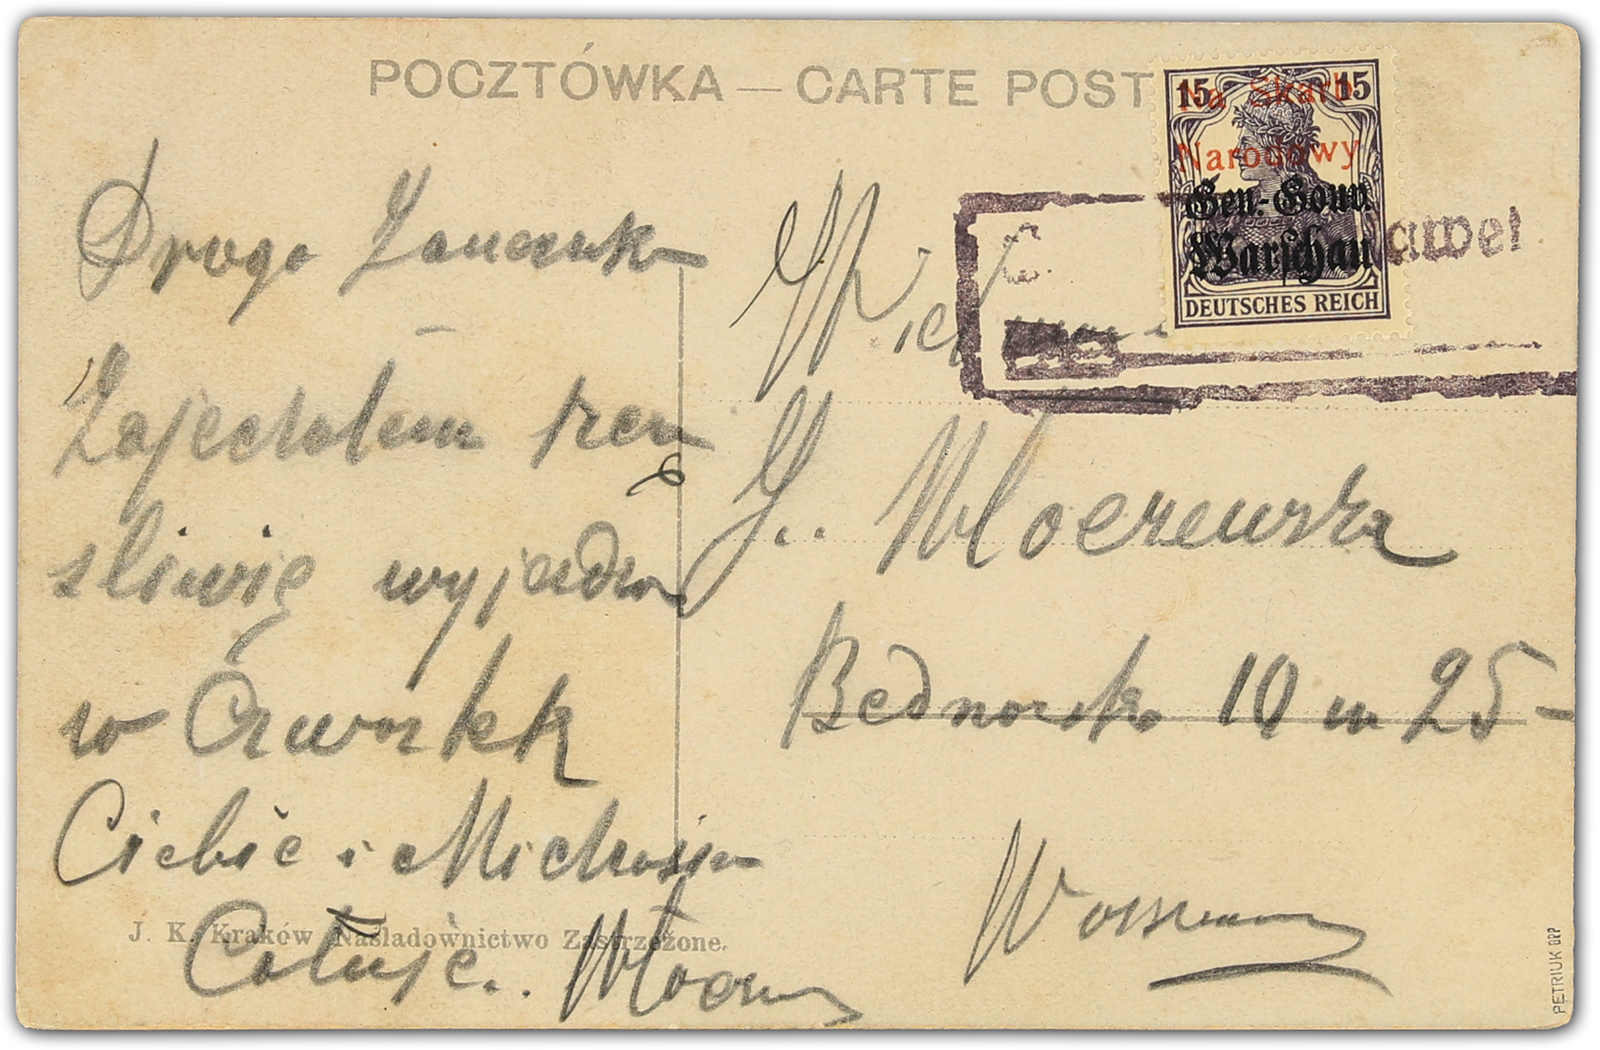 POCZTÓWKA — CARTE POST
15 15
Na Skarb
Narodowy
Gen.-Gouv.
Warschau
DEUTSCHES REICH
awel
Droga Janeczko
Zajechałem szczę
śliwię wyjeżdżam
w Czwartek
Ciebie i Michasia
Całuję.
W. Pi
J. Włoczewska
Bednarska 10 m 25
Warszawa
J. K. Kraków Naśladownictwo Zastrzeżone.
PETRIUK BPP